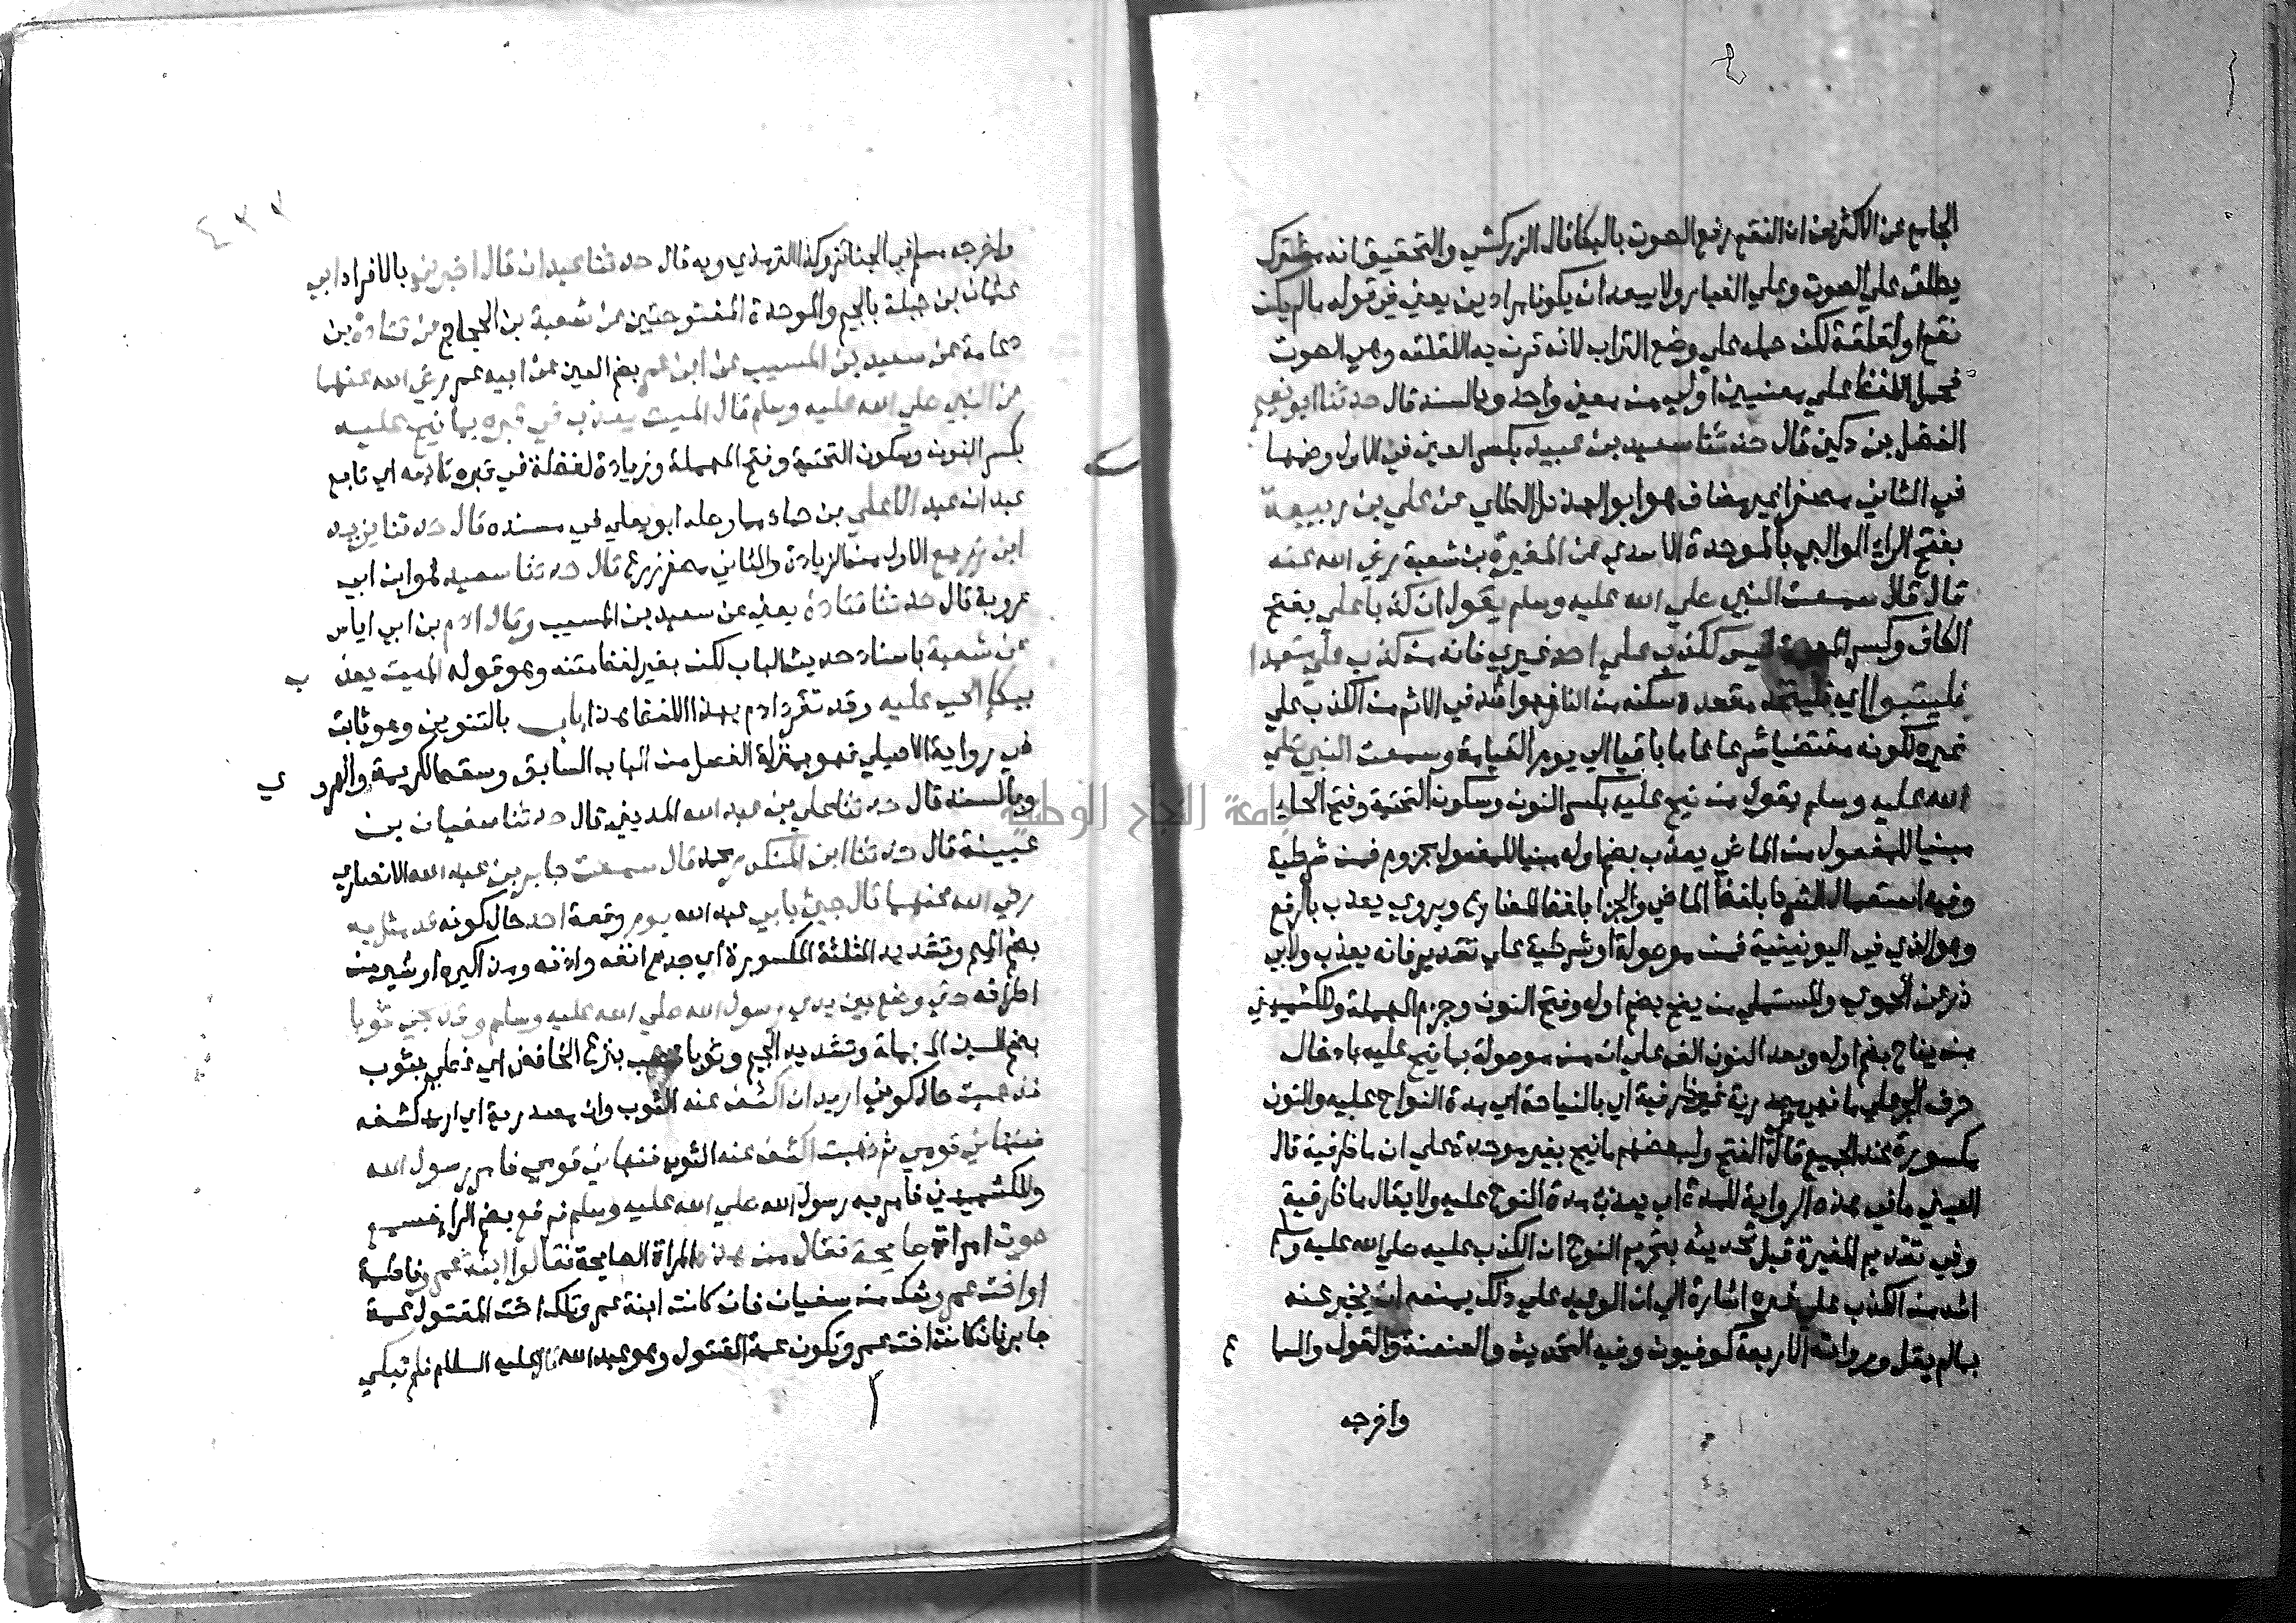 الجامع عن الاكثرين ان النقع رفع الصوت بالبكا قال الزركشي والتحقيق انه مشترك
يطلق علي الصوت وعلي الغبار ولا يبعد ان يكونا مرادين يعني في قوله مالم يكن
نقع او لقلقة لكن حمله علي وضع التراب لانه قرن به اللقلقه وهي الصوت
فحمل اللفظ علي معنيين اولي من معني واحد وبالسند قال حدثنا ابو نعيم
الفضل بن دكين قال حدثنا سعيد بن عبيد بكسر العين في الاول وضمها
في الثاني مصغرا غير مضاف هو ابو الهذيل الطائي عن علي بن ربيعة
بفتح الراء الوالبي بالموحدة الاسدي عن المغيرة بن شعبة رضي الله عنه
قال قال سمعت النبي صلي الله عليه وسلم يقول ان كذبا علي بفتح
الكاف وكسر المعجمة ليس ككذب علي احد غيري فانه من كذب علي متعمدا
فليتبوا اي فليتخذ مقعده مسكنه من النار فهو اشد في الاثم من الكذب علي
غيره لكونه مقتضيا شرعا عاما باقيا الي يوم القيامة وسمعت النبي صلي
الله عليه وسلم يقول من نيح عليه بكسر النون وسكون التحتية وفتح الحاء
مبنيا للمفعول من الماضي يعذب بضم اوله مبنيا للمفعول مجزوم فمن شرطية
وفيه استعمال الشرط بلفظ الماضي والجزا بلفظ المضارع ويروي يعذب بالرفع
وهو الذي في اليونينية فمن موصولة او شرطية علي تقدير فانه يعذب ولابي
ذر عن الحموي والمستملي من ينح بضم اوله وفتح النون وجزم المهملة وللكشميهني
من يناح بضم اوله وبعد النون الف علي ان من موصولة بما نيح عليه بادخال
حرف الجر علي ما فهي مصدرية غير ظرفية اي بالنياحة اي مدة النواح عليه والنون
مكسورة عند الجميع قال في الفتح ولبعضهم ما نيح بغير موحدة علي ان ما ظرفية قال
العيني ما في هذه الرواية للمدة اي يعذب مدة النوح عليه ولا يقال ما ظرفية
وفي تقديم المغيرة قبل تحديثه بتحريم النوح ان الكذب عليه صلي الله عليه وسلم
اشد من الكذب علي غيره اشارة الي ان الوعيد علي ذلك يمنعه ان يخبر عنه
بمالم يقل ورواته الاربعة كوفيون وفيه التحديث والعنعنة والقول والسما ع
واخرجه
٤٣٢
واخرجه مسلم في الجنائز وكذا الترمذي وبه قال حدثنا عبدان قال اخبرني بالافراد ابي
عثمان بن جبلة بالجيم والموحدة المفتوحتين عن شعبة بن الحجاج عن قتادة بن
دعامة عن سعيد بن المسيب عن ابن عمر بضم العين عن ابيه عمر رضي الله عنهما
عن النبي صلي الله عليه وسلم قال الميت يعذب في قبره بما نيح عليه
بكسر النون وسكون التحتية وفتح المهملة وزيادة لفظة في قبره تابعه اي تابع
عبدان عبد الاعلي بن حماد مما وصله ابو يعلي في مسنده قال حدثنا يزيد
ابن زريع الاول من الزيادة والثاني مصغر زرع قال حدثنا سعيد هو ابن ابي
عروبة قال حدثنا قتادة يعني عن سعيد بن المسيب وقال ادم بن ابي اياس
عن شعبة باسناد حديث الباب لكن بغير لفظ متنه وهو قوله الميت يعذ ب
ببكا الحي عليه وقد تفرد ادم بهذا اللفظ هذا باب بالتنوين وهو ثابت
في رواية الاصيلي فهو بمنزلة الفصل من الباب السابق وسقط لكريمة والهرو ي
وبالسند قال حدثنا علي بن عبد الله المديني قال حدثنا سفيان بن
عيينة قال حدثنا ابن المنكدر محمد قال سمعت جابر بن عبد الله الانصاري
رضي الله عنهما قال جيئ بابي عبد الله يوم وقعة احد حال كونه قد مثل به
بضم الميم وتشديد المثلثة المكسورة اي جدع انفه واذنه ومذاكيره او شي من
اطرافه حتي وضع بين يدي رسول الله صلي الله عليه وسلم وقد سجي ثوبا
بضم السين المهملة وتشديد الجيم وثوبا نصب بنزع الخافض اي غطي بثوب
فذهبت حال كوني اريد ان اكشف عنه الثوب وان مصدرية اي اريد كشفه
فنهاني قومي ثم ذهبت اكشف عنه الثوب فنهاني قومي فامر رسول الله
وللكشميهني فامر به رسول الله صلي الله عليه وسلم فرفع بضم الراء فسمع
صوت امراة صايحة فقال من هذه المراة الصايحة فقالوا ابنة عمرو فاطمة
او اخت عمرو شك من سفيان فان كانت ابنة عمرو فتلك اخت المقتول عمة
جابر فان كانت اخت عمرو تكون عمة المقتول وهو عبد الله قال عليه السلام فلم تبكي
جامعة النجاح الوطنية